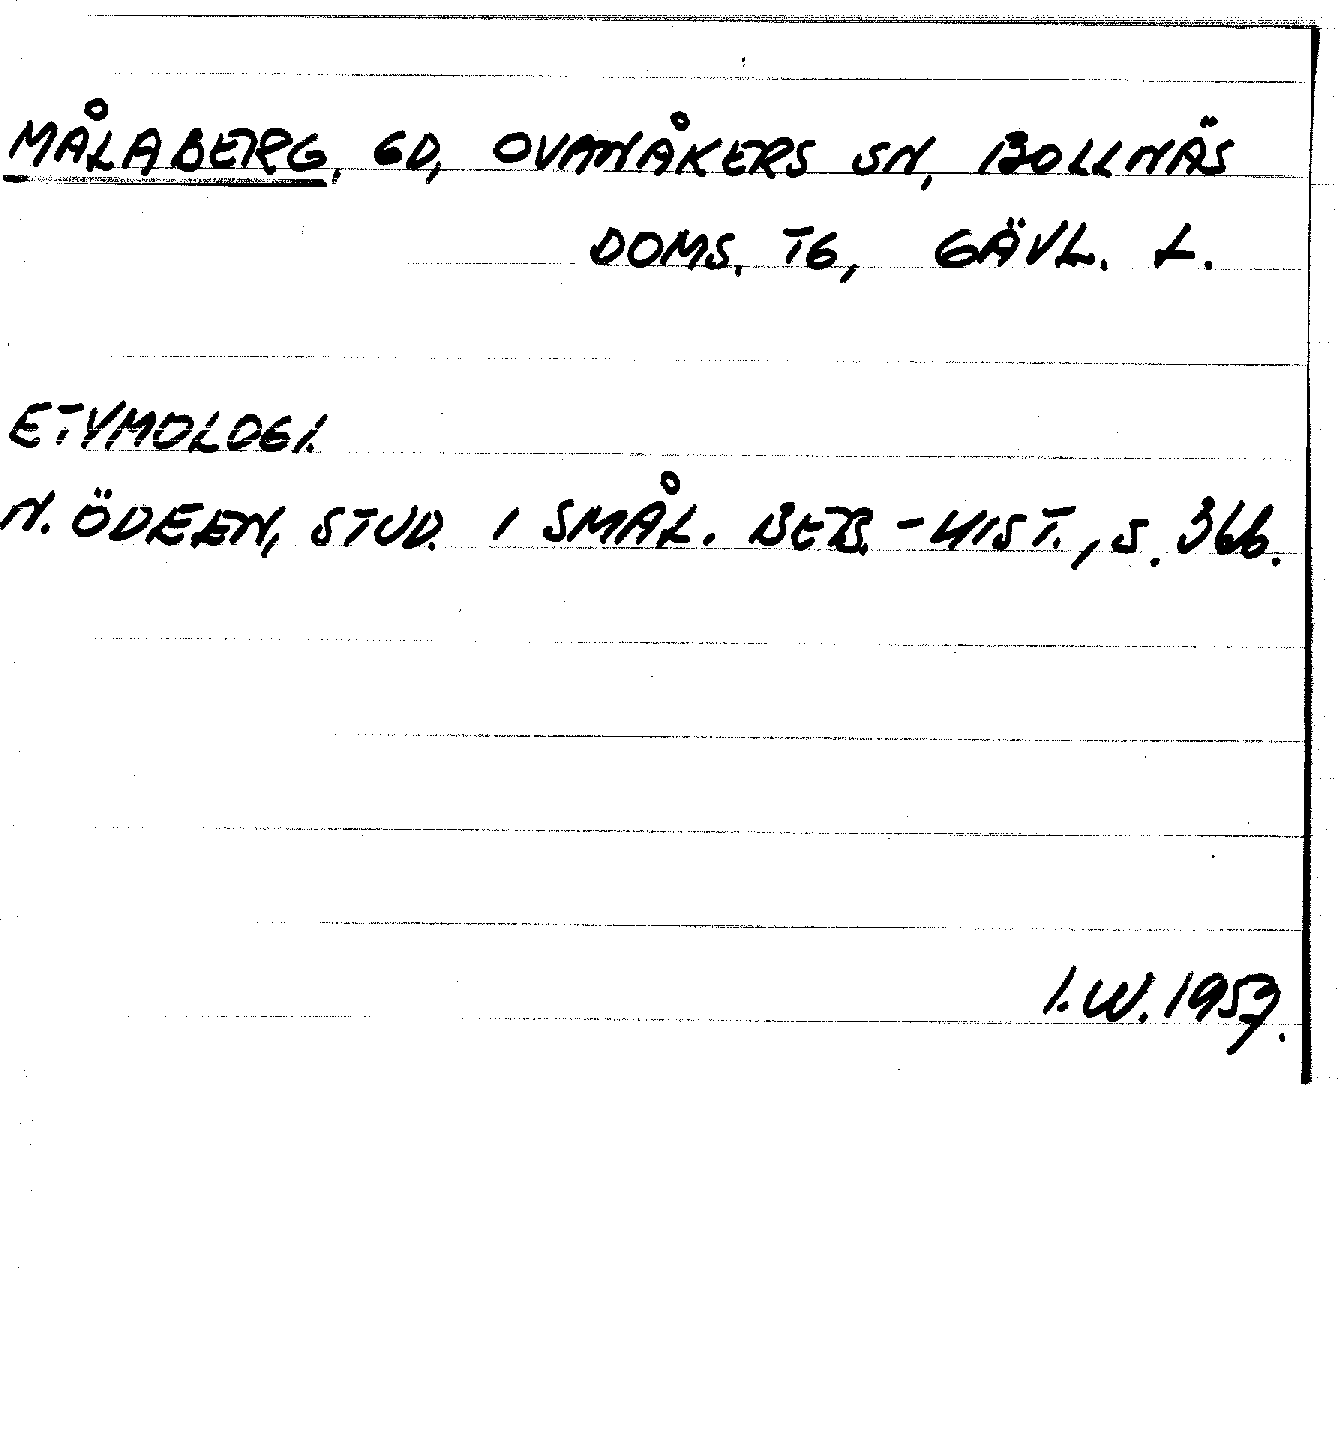 MÅLABERG, GD, OVANÅKERS SN, BOLLNÄS
DOMS. TG, GÄVL. L.
ETYMOLOGI.
N. ÖDEEN, STUD. I SMÅL. BEB.-HIST., S. 366.
I.W. 1957.